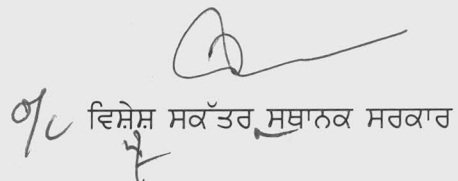 o/c ਵਿਸ਼ੇਸ਼ ਸਕੱਤਰ ਸਥਾਨਕ ਸਰਕਾਰ